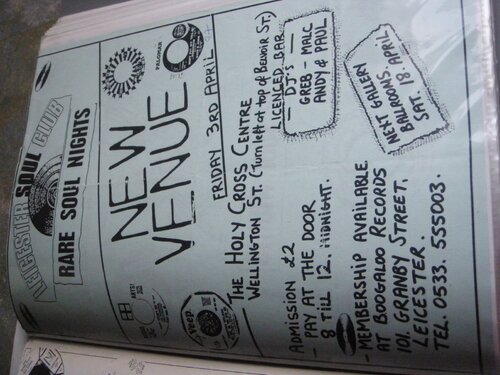 LEICESTER SOUL CLUB
RARE SOUL NIGHTS
NEW
VENUE
FRIDAY 3RD APRIL
THE HOLY CROSS CENTRE
WELLINGTON ST. (Turn left at top of Belvoir St.)
LICENCED BAR
ADMISSION £2
- PAY AT THE DOOR
8 TILL 12. MIDNIGHT.
- DJ'S -
GREB - MALC
ANDY & PAUL
- MEMBERSHIP AVAILABLE
AT BOOGALOO RECORDS
101, GRANBY STREET.
LEICESTER.
TEL. 0533. 555003.
NEXT GALLERY
BALLROOMS.
SAT. 18 APRIL